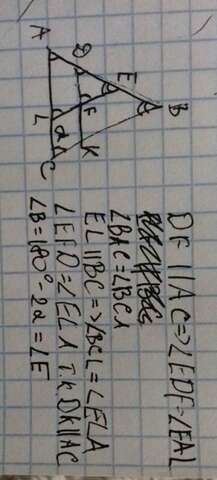 A
D
E
B
F
L
α
K
C
DF || AC => ∠EDF = ∠EAL
∠BAC = ∠BCA
EL || BC => ∠BCL = ∠ELA
∠EFD = ∠ELA т.к DK || AC
∠B = 180° - 2α = ∠E